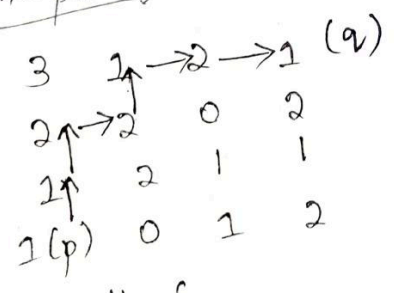 3 1 → 2 → 1 (q)
2 → 2 0 2
1 2 1 1
1(p) 0 1 2